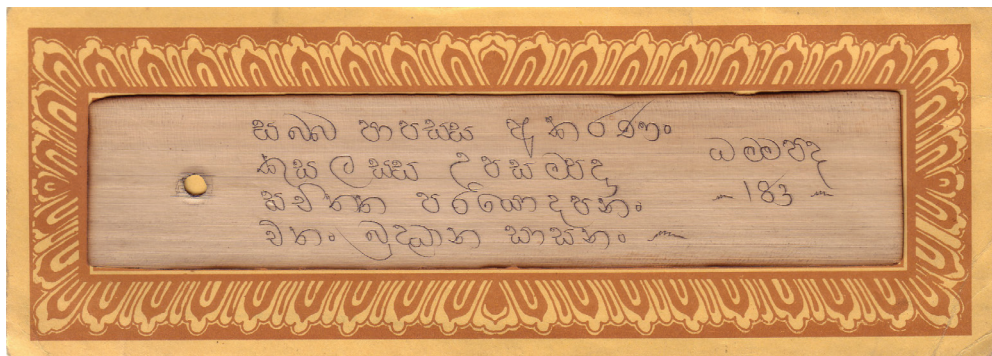 සබ්බ පාපස්ස අකරණං
කුසලස්ස උපසම්පදා
සචිත්ත පරියොදපනං
එතං බුද්ධාන සාසනං
ධම්මපද
183